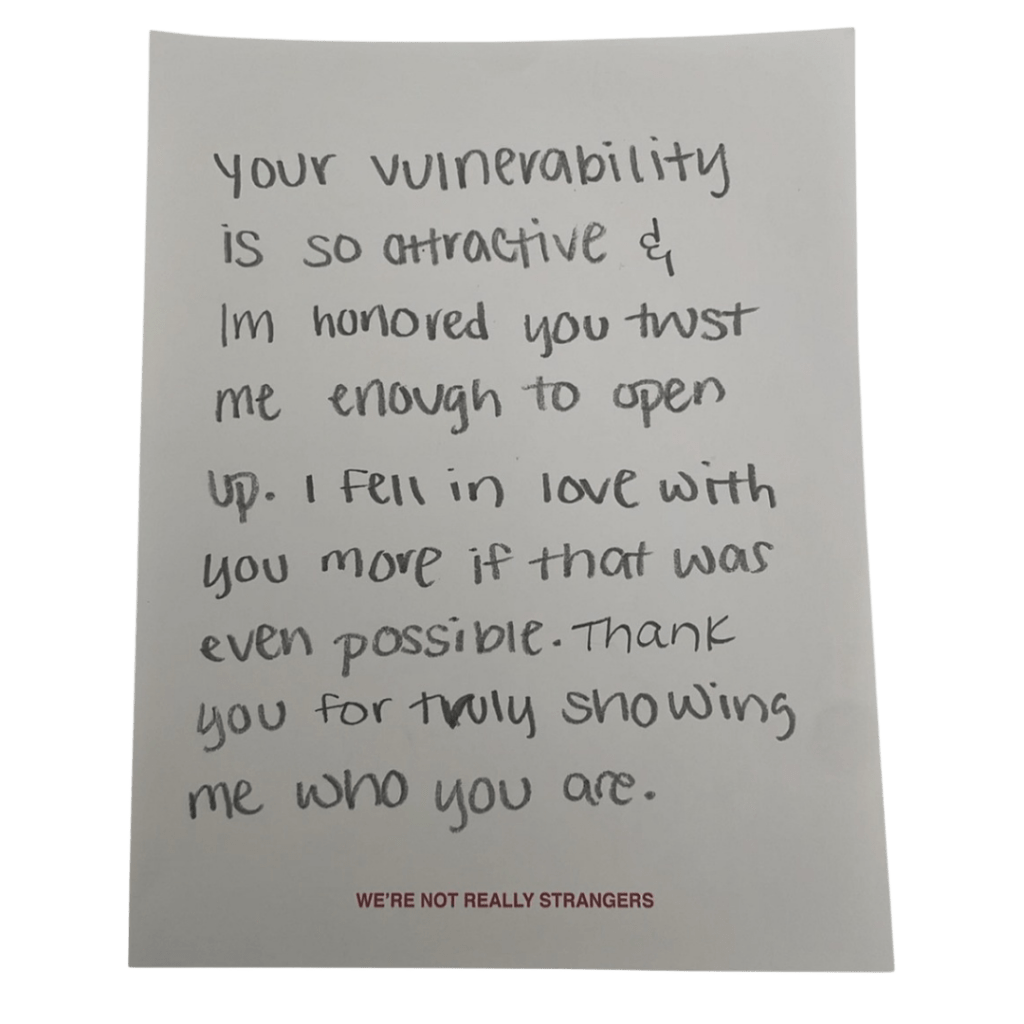 your vulnerability
is so attractive &
Im honored you trust
me enough to open
up. I fell in love with
you more if that was
even possible. Thank
you for truly showing
me who you are.
WE'RE NOT REALLY STRANGERS